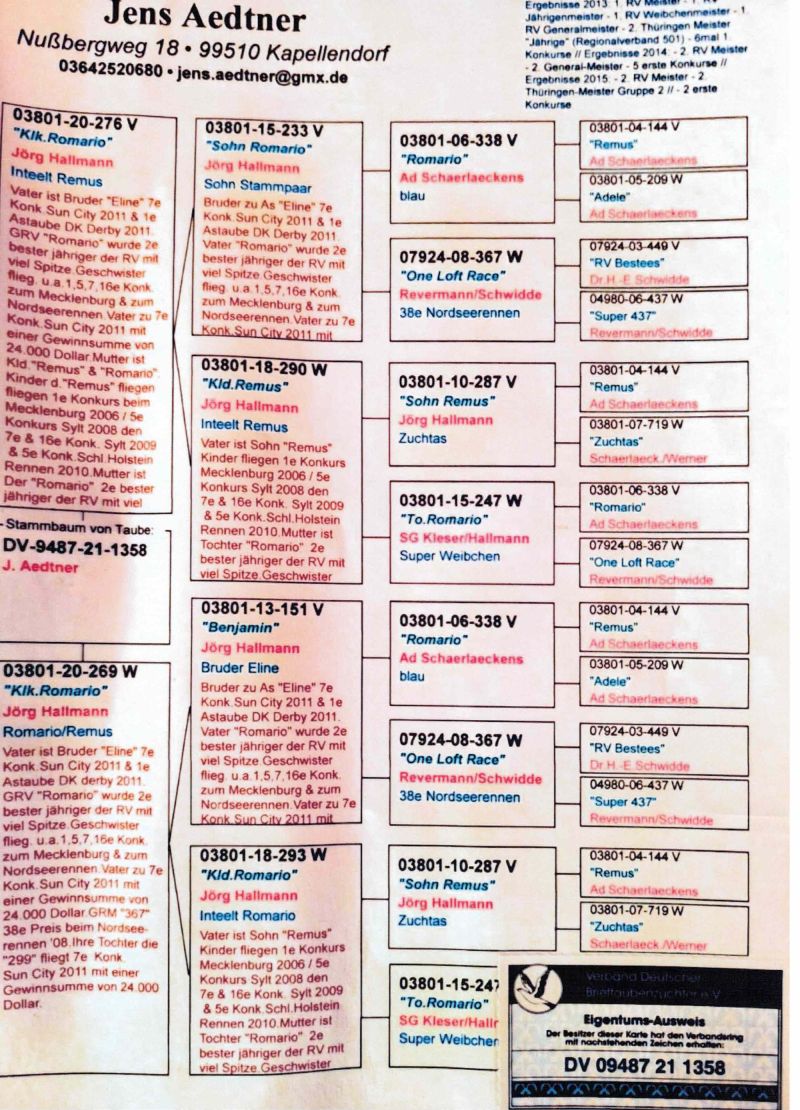 Jens Aedtner
Nußbergweg 18 • 99510 Kapellendorf
03642520680 • jens.aedtner@gmx.de
Ergebnisse 2013: 1. RV Meister - 1. RV
Jährigenmeister - 1. RV Weibchenmeister - 1.
RV Generalmeister - 2. Thüringen Meister
"Jährige" (Regionalverband 501) - 6mal 1.
Konkurse // Ergebnise 2014: - 2. RV Meister
- 2. General-Meister - 5 erste Konkurse //
Ergebnisse 2015: - 2. RV Meister - 2.
Thüringen-Meister Gruppe 2 // - 2 erste
Konkurse
03801-20-276 V
"Klk.Romario"
Jörg Hallmann
Inteelt Remus
Vater ist Bruder "Eline" 7e
Konk.Sun City 2011 & 1e
Astaube DK Derby 2011.
GRV "Romario" wurde 2e
bester jähriger der RV mit
viel Spitze.Geschwister
flieg. u.a.1,5,7,16e Konk.
zum Mecklenburg & zum
Nordseerennen.Vater zu 7e
Konk.Sun City 2011 mit
einer Gewinnsumme von
24.000 Dollar.Mutter ist
Kld."Remus" & "Romario".
Kinder d."Remus" fliegen
fliegen 1e Konkurs beim
Mecklenburg 2006 / 5e
Konkurs Sylt 2008 den
7e & 16e Konk. Sylt 2009
& 5e Konk.Schl.Holstein
Rennen 2010.Mutter ist
Der "Romario" 2e bester
jähriger der RV mit viel
- Stammbaum von Taube:
DV-9487-21-1358
J. Aedtner
03801-20-269 W
"Klk.Romario"
Jörg Hallmann
Romario/Remus
Vater ist Bruder "Eline" 7e
Konk.Sun City 2011 & 1e
Astaube DK derby 2011.
GRV "Romario" wurde 2e
bester jähriger der RV mit
viel Spitze.Geschwister
flieg. u.a.1,5,7,16e Konk.
zum Mecklenburg & zum
Nordseerennen.Vater zu 7e
Konk.Sun City 2011 mit
einer Gewinnsumme von
24.000 Dollar.GRM "367"
38e Preis beim Nordsee-
rennen '08.Ihre Tochter die
"299" fliegt 7e Konk.
Sun City 2011 mit einer
Gewinnsumme von 24.000
Dollar.
03801-15-233 V
"Sohn Romario"
Jörg Hallmann
Sohn Stammpaar
Bruder zu As "Eline" 7e
Konk.Sun City 2011 & 1e
Astaube DK Derby 2011.
Vater "Romario" wurde 2e
bester jähriger der RV mit
viel Spitze.Geschwister
flieg. u.a.1,5,7,16e Konk.
zum Mecklenburg & zum
Nordseerennen.Vater zu 7e
Konk.Sun City 2011 mit
03801-18-290 W
"Kld.Remus"
Jörg Hallmann
Inteelt Remus
Vater ist Sohn "Remus"
Kinder fliegen 1e Konkurs
Mecklenburg 2006 / 5e
Konkurs Sylt 2008 den
7e & 16e Konk. Sylt 2009
& 5e Konk.Schl.Holstein
Rennen 2010.Mutter ist
Tochter "Romario" 2e
bester jähriger der RV mit
viel Spitze.Geschwister
03801-13-151 V
"Benjamin"
Jörg Hallmann
Bruder Eline
Bruder zu As "Eline" 7e
Konk.Sun City 2011 & 1e
Astaube DK Derby 2011.
Vater "Romario" wurde 2e
bester jähriger der RV mit
viel Spitze.Geschwister
flieg. u.a.1,5,7,16e Konk.
zum Mecklenburg & zum
Nordseerennen.Vater zu 7e
Konk.Sun City 2011 mit
03801-18-293 W
"Kld.Romario"
Jörg Hallmann
Inteelt Romario
Vater ist Sohn "Remus"
Kinder fliegen 1e Konkurs
Mecklenburg 2006 / 5e
Konkurs Sylt 2008 den
7e & 16e Konk. Sylt 2009
& 5e Konk.Schl.Holstein
Rennen 2010.Mutter ist
Tochter "Romario" 2e
bester jähriger der RV mit
viel Spitze.Geschwister
03801-06-338 V
"Romario"
Ad Schaerlaeckens
blau
07924-08-367 W
"One Loft Race"
Revermann/Schwidde
38e Nordseerennen
03801-10-287 V
"Sohn Remus"
Jörg Hallmann
Zuchtas
03801-15-247 W
"To.Romario"
SG Kleser/Hallmann
Super Weibchen
03801-06-338 V
"Romario"
Ad Schaerlaeckens
blau
07924-08-367 W
"One Loft Race"
Revermann/Schwidde
38e Nordseerennen
03801-10-287 V
"Sohn Remus"
Jörg Hallmann
Zuchtas
03801-15-247
"To.Romario"
SG Kleser/Hallr
Super Weibcher
03801-04-144 V
"Remus"
Ad Schaerlaeckens
03801-05-209 W
"Adele"
Ad Schaerlaeckens
07924-03-449 V
"RV Bestees"
Dr.H.-E.Schwidde
04980-06-437 W
"Super 437"
Revermann/Schwidde
03801-04-144 V
"Remus"
Ad Schaerlaeckens
03801-07-719 W
"Zuchtas"
Schaerlaeck./Werner
03801-06-338 V
"Romario"
Ad Schaerlaeckens
07924-08-367 W
"One Loft Race"
Revermann/Schwidde
03801-04-144 V
"Remus"
Ad Schaerlaeckens
03801-05-209 W
"Adele"
Ad Schaerlaeckens
07924-03-449 V
"RV Bestees"
Dr.H.-E.Schwidde
04980-06-437 W
"Super 437"
Revermann/Schwidde
03801-04-144 V
"Remus"
Ad Schaerlaeckens
03801-07-719 W
"Zuchtas"
Schaerlaeck./Werner
Verband Deutscher
Brieftaubenzüchter e.V.
Eigentums-Ausweis
Der Besitzer dieser Karte hat den Verbandsring
mit nachstehenden Zeichen erhalten:
DV 09487 21 1358